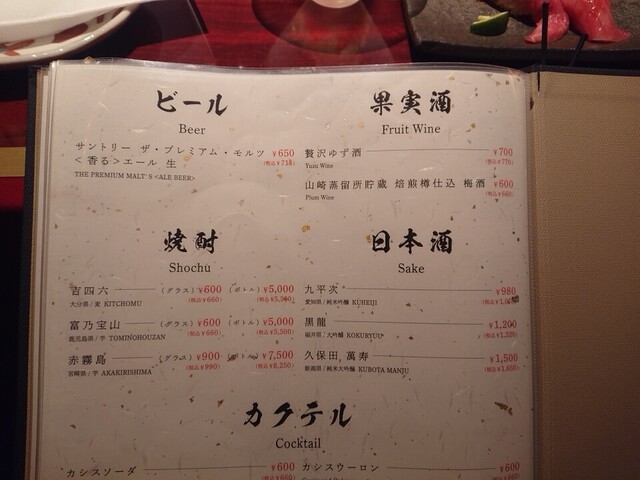 ビール
Beer
サントリー ザ・プレミアム・モルツ ¥650
<香る>エール 生 (税込¥715)
THE PREMIUM MALT'S <ALE BEER>
果実酒
Fruit Wine
贅沢ゆず酒 ¥700
Yuzu Wine (税込¥770)
山崎蒸留所貯蔵 焙煎樽仕込 梅酒 ¥600
Plum Wine (税込¥660)
焼酎
Shochu
吉四六 (グラス) ¥600 (ボトル) ¥5,000
大分県/麦 KITCHOMU (税込¥660) (税込¥5,500)
富乃宝山 (グラス) ¥600 (ボトル) ¥5,000
鹿児島県/芋 TOMINOHOUZAN (税込¥660) (税込¥5,500)
赤霧島 (グラス) ¥900 (ボトル) ¥7,500
宮崎県/芋 AKAKIRISHIMA (税込¥990) (税込¥8,250)
日本酒
Sake
九平次 ¥980
愛知県/純米吟醸 KUHEIJI
黒龍 ¥1,200
福井県/大吟醸 KOKURYU (税込¥1,320)
久保田 萬寿 ¥1,500
新潟県/純米大吟醸 KUBOTA MANJU (税込¥1,650)
カクテル
Cocktail
カシスソーダ ¥600
カシスウーロン ¥600